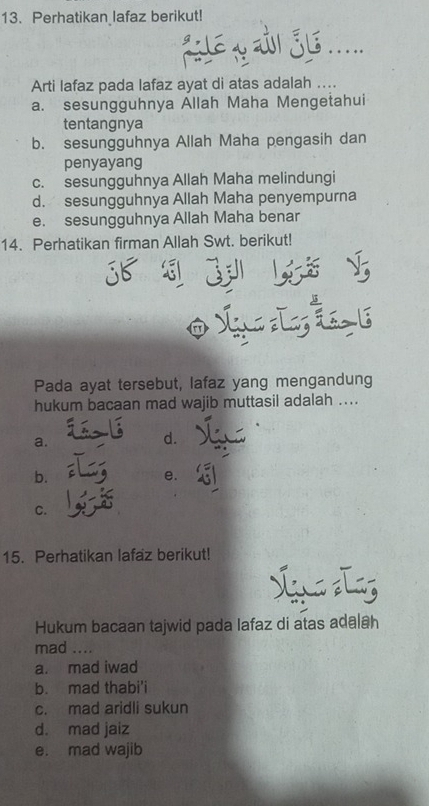 13. Perhatikan lafaz berikut!
..... فَإِنَّ اللّٰهَ بِهٖ عَلِيْمٌ
Arti lafaz pada lafaz ayat di atas adalah ....
a. sesungguhnya Allah Maha Mengetahui
tentangnya
b. sesungguhnya Allah Maha pengasih dan
penyayang
c. sesungguhnya Allah Maha melindungi
d. sesungguhnya Allah Maha penyempurna
e. sesungguhnya Allah Maha benar
14. Perhatikan firman Allah Swt. berikut!
وَلَا تَقْرَبُوا الزِّنٰٓى اِنَّهٗ كَانَ
فَاحِشَةً ۗ وَسَاۤءَ سَبِيْلًا ﴿٣٢﴾
Pada ayat tersebut, lafaz yang mengandung
hukum bacaan mad wajib muttasil adalah ....
a. فَاحِشَةً d. سَبِيْلًا
b. وَسَاۤءَ e. اِنَّهٗ
c. تَقْرَبُوا
15. Perhatikan lafaz berikut!
وَسَاۤءَ سَبِيْلًا
Hukum bacaan tajwid pada lafaz di atas adalah
mad ....
a. mad iwad
b. mad thabi'i
c. mad aridli sukun
d. mad jaiz
e. mad wajib